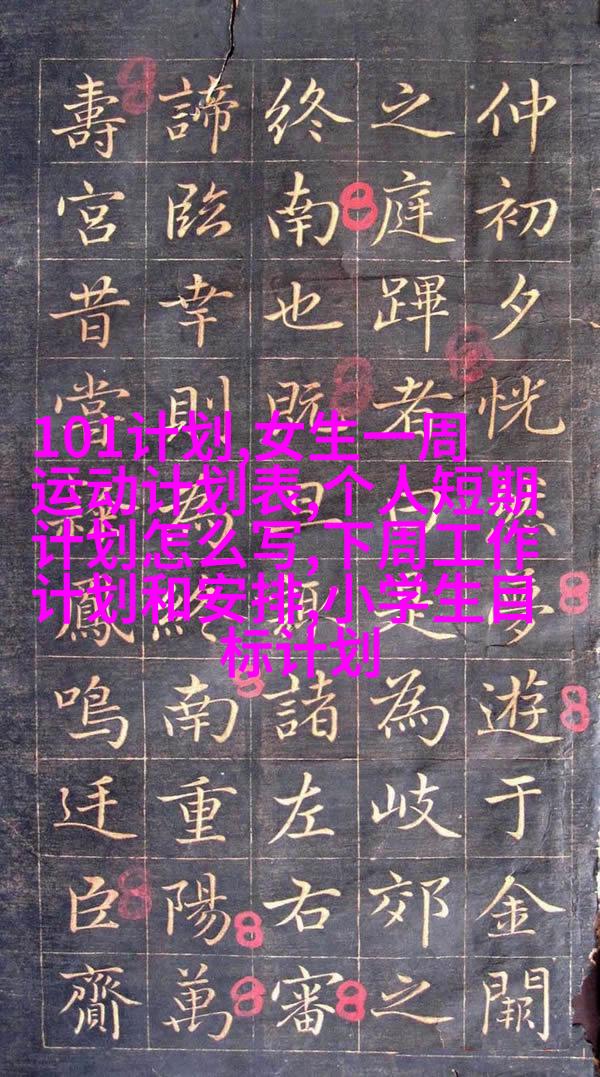 仲初夕恍然夢遊于金闕
之庭蹕者曰是為岐郊之
終南也既旦顧諸左右審
諦臨幸則為終南重陽萬
壽宮昔當鳳鳴廷臣齎
101计划,女生一周
运动计划表,个人短期
计划怎么写,下周工作
计划和安排,小学生目
标计划